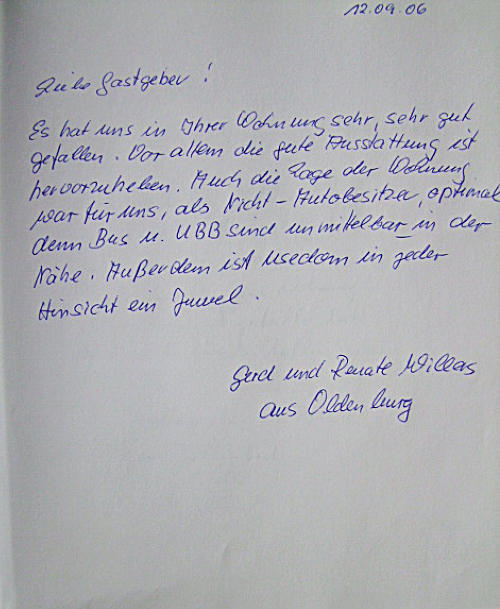 12.09.06
Liebe Gastgeber!
Es hat uns in Ihrer Wohnung sehr, sehr gut
gefallen. Vor allem die gute Ausstattung ist
hervorzuheben. Auch die Lage der Wohnung
war für uns, als Nicht-Autobesitzer, optimal
denn Bus u. UBB sind unmittelbar in der
Nähe. Außerdem ist Usedom in jeder
Hinsicht ein Juwel.
Gerd und Renate Willas
aus Oldenburg